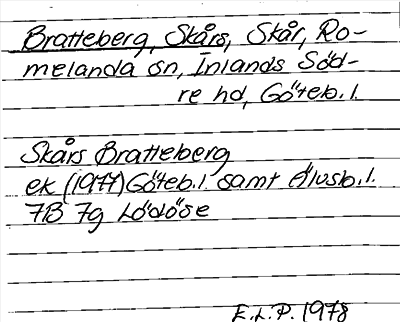 Bratteberg, Skårs, Skår, Ro-
melanda sn, Inlands Söd-
re hd, Göteb.l.
Skårs Bratteberg
ek (1977) Göteb.l samt Älvsb.l.
7B 7g Lödöse
E.L.P. 1978